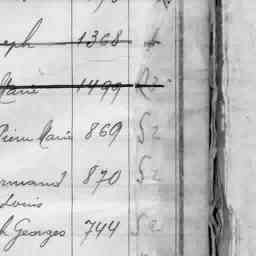 eph 1368
Marie 1499 R2
Pierre Marie 869 S2
rmand 870 S2
Louis
h Georges 744 S2